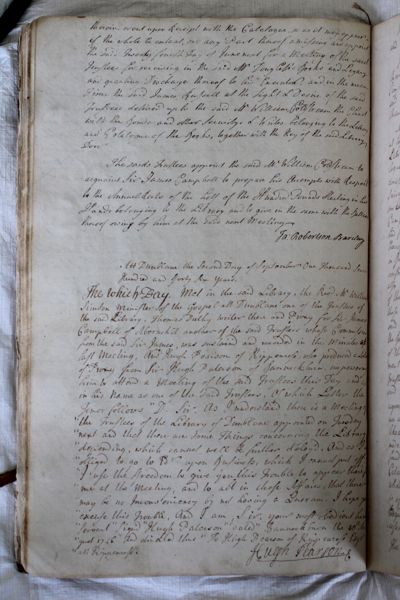 thereon over upon Receipt with the Catalogue, or as it may appear
of the whole to contain, or any part thereof amissing and appoint
the said twenty fourth of June next, for a Meeting of the said
Trustees for receiving in the said Mr books and Legacy
and granting Discharge thereof to his Executors and in the mean
time the said James at the sight & Desire of the said
Trustees delivered up to the said Mr William Coldstream the Chest
with the Bonds and other Securitys & Writes belonging to the Library
and Catalogue of the Books, together with the Key of the said Library
Door
The saids Trustees appoint the said Mr William Coldstream to
acquaint Sir James Campbell to prepare his Accompts with Respect
to the Annualrents of the half of the Hundred Pounds Sterling in his
Hands belonging to the Library and to give in the same with the
thereof owing by him at the said next Meeting
Ja: Robertson
Att Dumblane the Second Day of September One thousand Seven
Hundred and forty Six Years.
The Which Day Met in the said Library, the Revd. Mr William
Simson Minister of the Gospel att Dumblane one of the Trustees of
the said Library, Thomas writer there and Proxy for Sir James
Campbell of Aberuchill another of the said Trustees whose Commission
from the said Sir James, was sustained and recorded in the Minutes att
last Meeting, And Hugh Pearson of Kippenross who produced a Letter
of Proxy from Sir Hugh Paterson of Bannockburn impowering
him to attend a Meeting of the said Trustees this Day and
in his name as one of the said Trustees, of which Letter the
Tenor follows "Dr Sir: As I understand there is a Meeting of
the Trustees of the Library of Dumblane appointed on Tuesday
next and that there are some things concerning the Library
depending, which cannot well be further delayed, And as I am
obliged to go to upon Business, which I cannot put off
I use the freedom to give you this trouble to appear there for
me at the Meeting, and to act in these Affairs, that there
may be no Inconveniency by not having a Quorum. I hope you'll
excuse this trouble, And I am, Sir, your most obedient humble
Servant Signed Hugh Paterson dated Bannockburn the
1746 And directed thus "To Hugh Pearson of Kippenross Esqr
att Kippenross"
Hugh Pearson